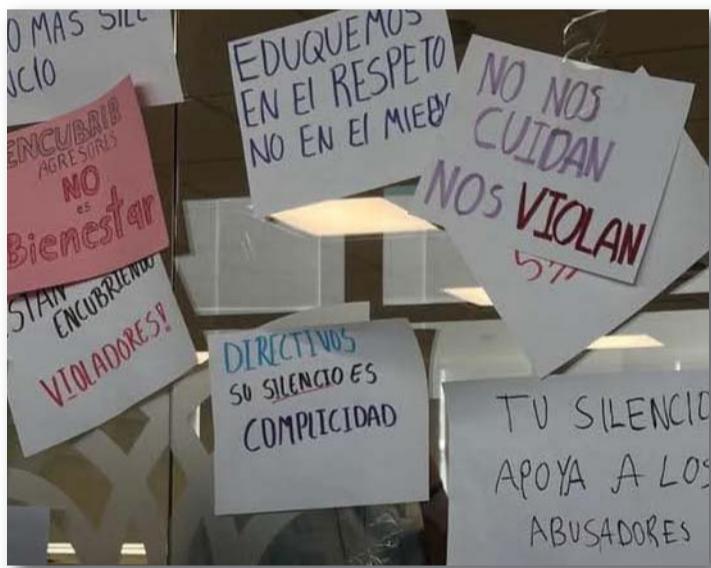 O MAS SILE
NCIO
EDUQUEMOS
EN El RESPETO
NO EN El MIEDO
NO NOS
CUIDAN
NOS VIOLAN
ENCUBRIR
AGRESORES
NO
es
Bienestar
ESTAN
ENCUBRIENDO
VIOLADORES!
DIRECTIVOS
SU SILENCIO ES
COMPLICIDAD
TU SILENCIO
APOYA A LOS
ABUSADORES